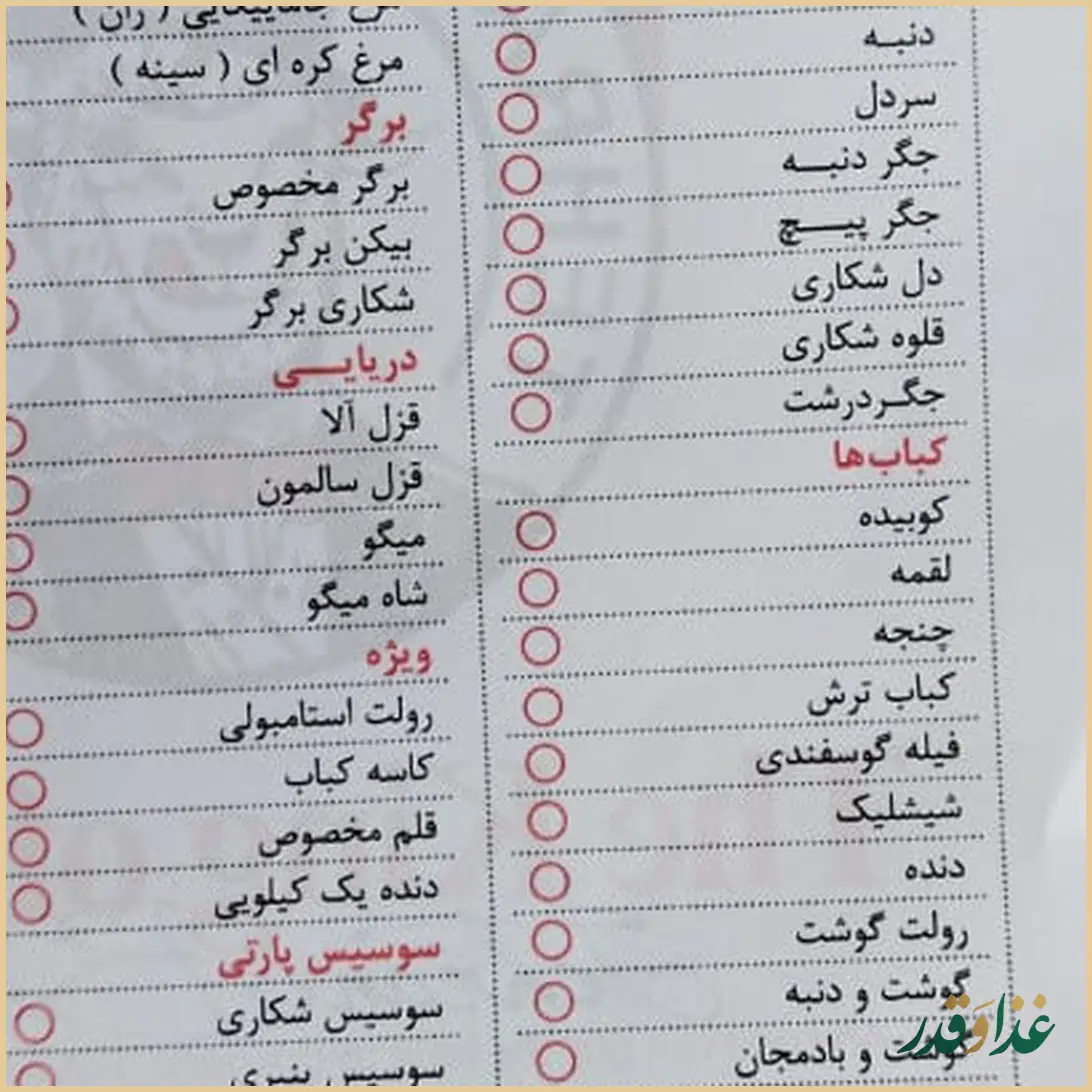 دنبه
سردل
جگر دنبه
جگر پیچ
دل شکاری
قلوه شکاری
جگردرشت
کباب‌ها
کوبیده
لقمه
چنجه
کباب ترش
فیله گوسفندی
شیشلیک
دنده
رولت گوشت
گوشت و دنبه
گوشت و بادمجان
مرغ جاماییکایی ( ران )
مرغ کره ای ( سینه )
برگر
برگر مخصوص
بیکن برگر
شکاری برگر
دریایی
قزل آلا
قزل سالمون
میگو
شاه میگو
ویژه
رولت استامبولی
کاسه کباب
قلم مخصوص
دنده یک کیلویی
سوسیس پارتی
سوسیس شکاری
سوسیس پنیری
غذا و قدر